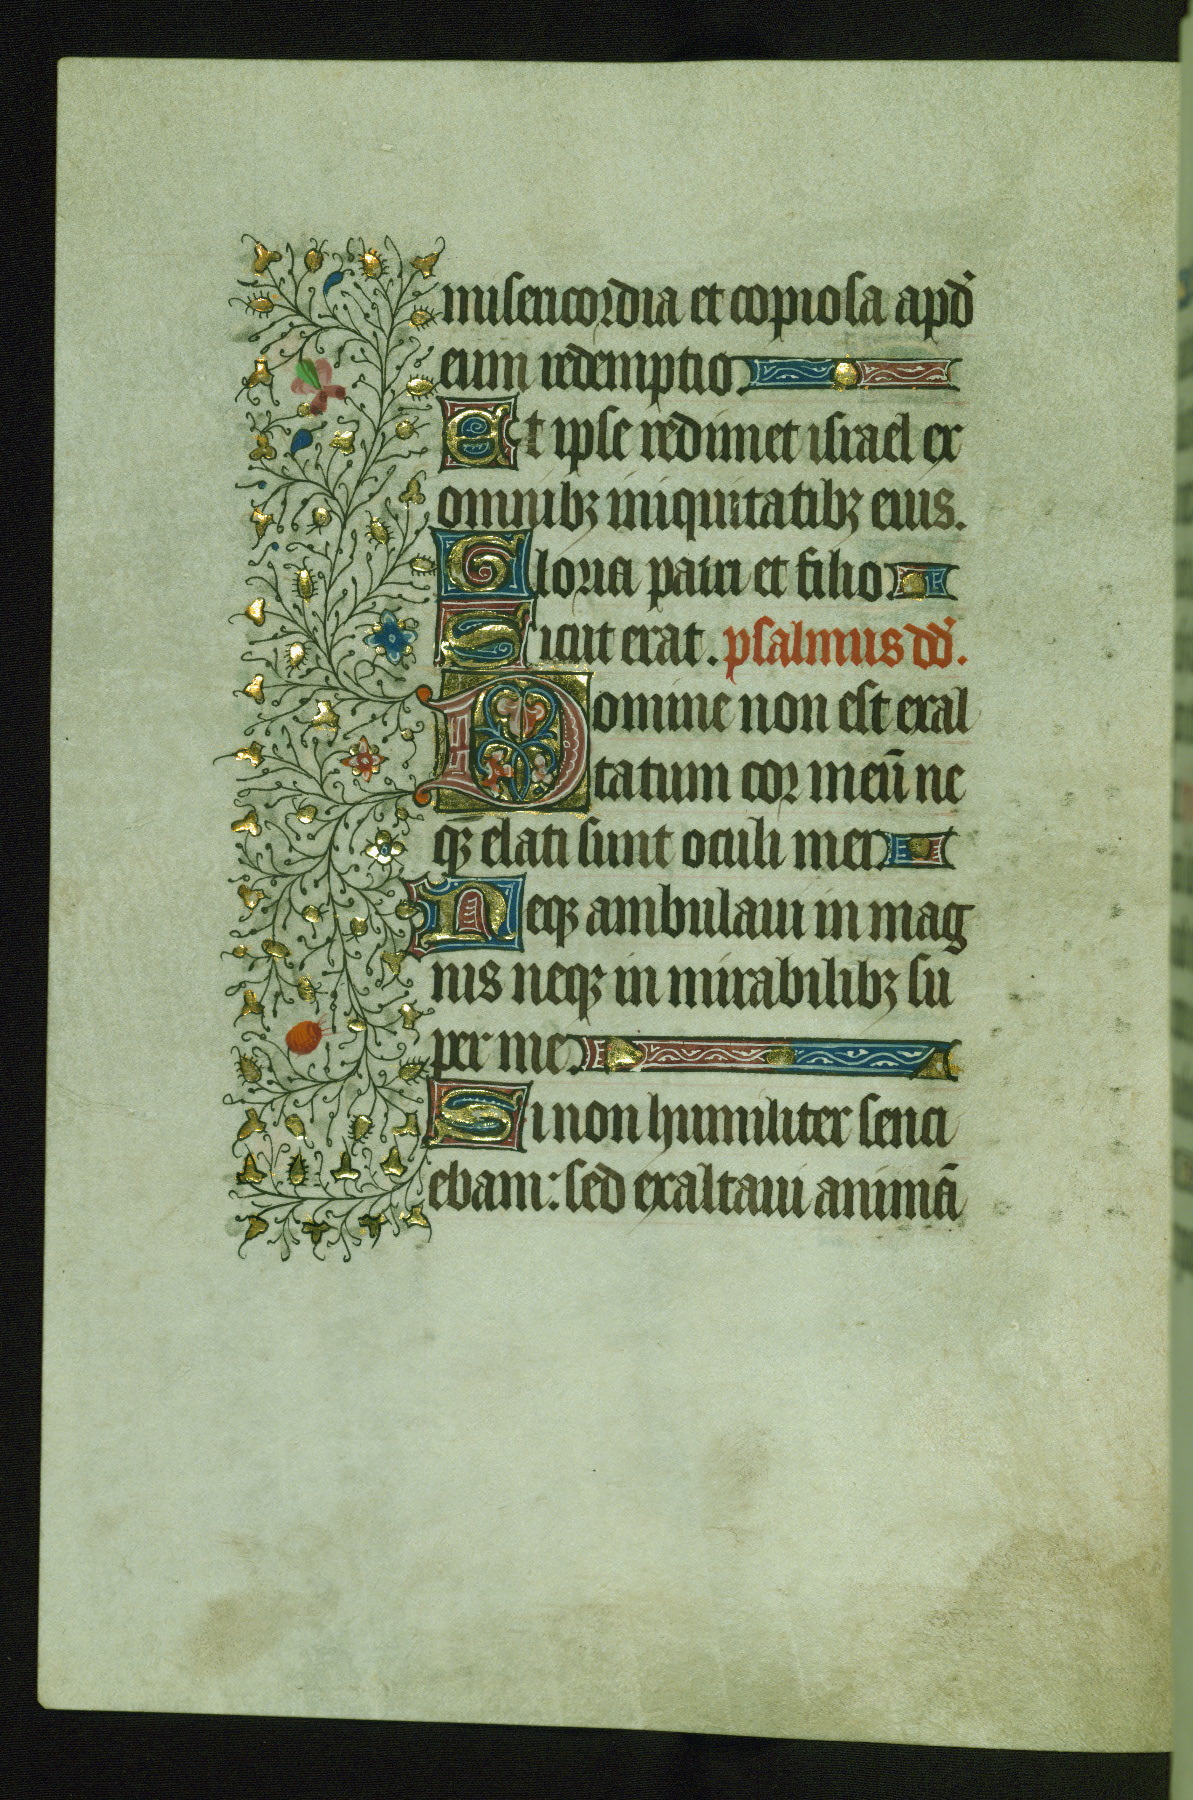 misericordia et copiosa apd̓
eum redemptio
Et ipse redimet israel ex
omnibꝫ iniquitatibꝫ eius.
Gloria patri et filio
Sicut erat. psalmus dd̓.
Domine non est exal
tatum cor meū ne
qꝫ elati sunt oculi mei
Neqꝫ ambulaui in mag
nis neqꝫ in mirabilibꝫ su
per me
Si non humiliter senci
ebam: sed exaltaui animā